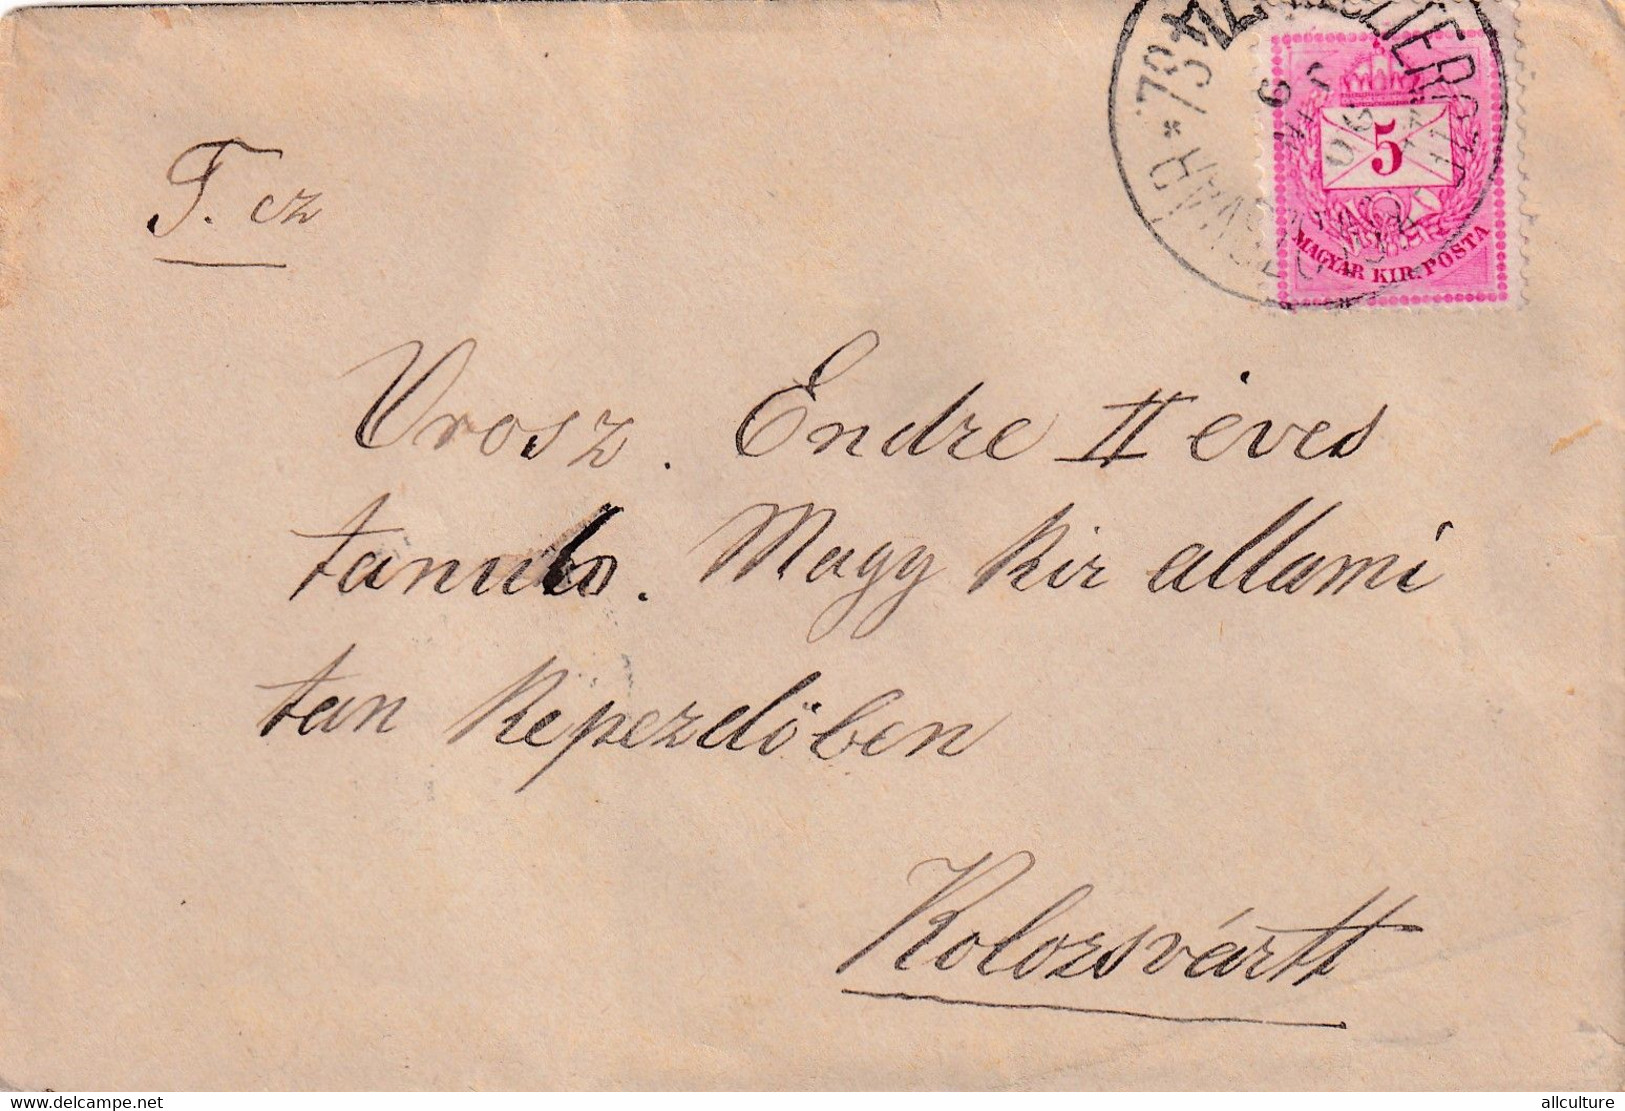 T. cz
5
MAGYAR KIR. POSTA
Vrosz. Endre II éves
tanuló. Magy Kir allami
tan Kepezdőben
Kolozsvártt
www.delcampe.net
allculture